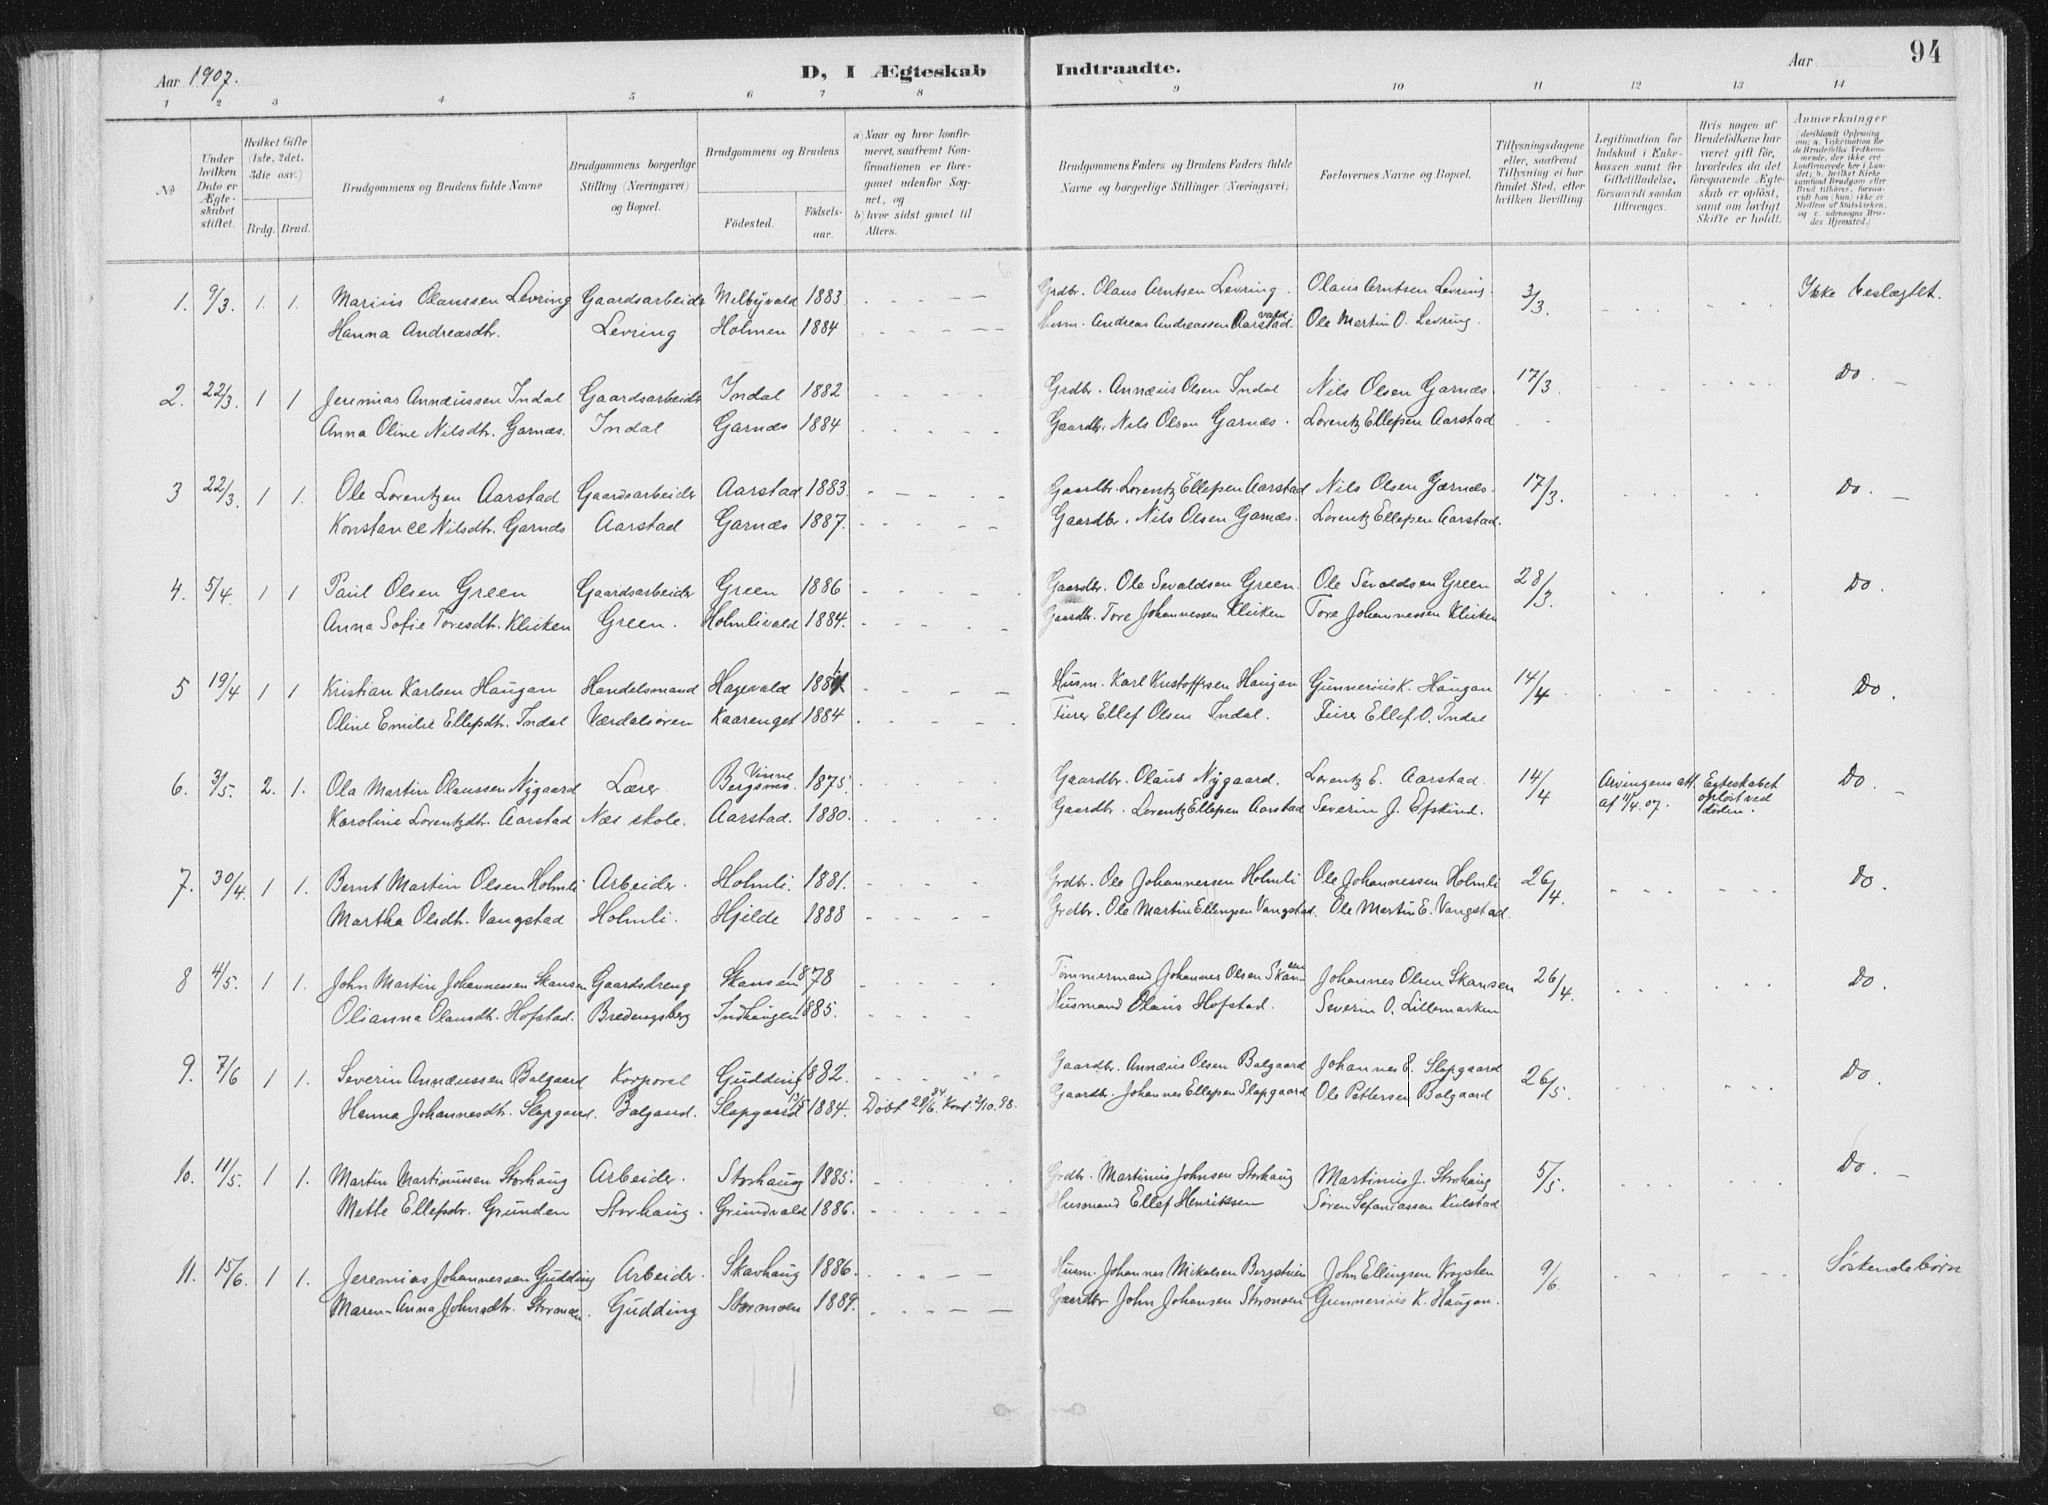 Aar 1907.
D, I Ægteskab Indtraadte.
Aar
94
1 2 3 4 5 6 7 8 9 10 11 12 13 14
No
Under hvilken Dato er Ægteskabet stiftet.
Hvilket Gifte (1ste, 2det, 3die osv.)
Brdg. Brud.
Brudgommens og Brudens fulde Navne
Brudgommens borgerlige Stilling (Næringsvei) og Bopæl.
Brudgommens og Brudens
Födested.
Födselsaar.
a) Naar og hvor konfirmeret, saafremt Konfirmationen er foregaaet udenfor Sognet, og
b) hvor sidst gaaet til Alters.
Brudgommens Faders og Brudens Faders fulde Navne og borgerlige Stillinger (Næringsvei)
Forlovernes Navne og Bopæl.
Tillysningsdagene eller, saafremt Tillysning ei har fundet Sted, efter hvilken Bevilling.
Legitimation for Indskud i Enkekassen samt for Giftetilladelse, forsaavidt saadan tiltrænges.
Hvis nogen af Brudefolkene har været gift för, hvorledes da det foregaaende Ægteskab er oplöst, samt om lovligt Skifte er holdt.
Anmærkninger
(deriblandt Oplysning om: a. Vakcination for de Brudefolks Vedkommende, der ikke ere konfirmerede her i Landet; b. hvilket Kirkesamfund Brudgom eller Brud tilhörer, forsaavidt han (hun) ikke er Medlem af Statskirken, og c. udensogns Brudes Hjemsted.)
1. 9/3. 1. 1. Marius Olaussen Levring Gaardsarbeider Melbyvald 1883. Grdbr. Olaus Arntsen Levring. Olaus Arntsen Levring. 3/3. Ikke beslægtet.
Hanna Andreasdtr. Levring Holmen 1884 Husm. Andreas Andreassen Aarstadvald. Ole Martin O. Levring.
2. 22/3. 1 1 Jeremias Annæussen Indal Gaardsarbeider Indal 1882 Grdbr. Annæus Olsen Indal Nils Olsen Garnæs. 17/3. Do.
Anna Oline Nilsdtr. Garnæs. Indal Garnæs 1884 Gaardbr. Nils Olsen Garnæs. Lorentz Ellefsen Aarstad
3 22/3. 1 1. Ole Lorentzen Aarstad Gaardsarbeider Aarstad 1883. Gaardbr. Lorentz Ellefsen Aarstad Nils Olsen Garnæs. 17/3. Do.
Konstance Nilsdtr. Garnæs Aarstad Garnæs 1887. Gaardbr. Nils Olsen Garnæs. Lorentz Ellefsen Aarstad.
4. 5/4. 1 1 Paul Olsen Green Gaardsarbeider Green 1886 Gaardbr. Ole Sevaldsen Green. Ole Sevaldsen Green 28/3. Do.
Anna Sofie Toresdtr. Kluken Green. Holmlivald 1884. Gaardbr. Tore Johannessen Kluken Tore Johannessen Kluken
5 19/4 1 1 Kristian Karlsen Haugan Handelsmand Hagevald Husm. Karl Kristoffersen Haugan Gunnerius K. Haugan 14/4 Do.
Oline Emilie Ellefsdtr. Indal Værdalsøren Kaarenget 1884 Furer Ellef Olsen Indal. Furer Ellef O. Indal
6. 3/5. 2. 1. Ola Martin Olaussen Nygaard Lærer Bergsmo. Vinne 1875. Gaardbr. Olaus Nygaard. Lorentz E. Aarstad. 14/4 Arvingens att. af 11/4. 07. Egteskabet opløst ved døden. Do.
Karoline Lorentzdtr. Aarstad Næs skole. Aarstad. 1880. Gaardbr. Lorentz Ellefsen Aarstad Severin J. Efskind.
7. 30/4. 1 1. Bernt Martin Olsen Holmli Arbeider. Holmli. 1881. Grdbr. Ole Johannessen Holmli Ole Johannessen Holmli 26/4. Do.
Martha Olsdtr. Vangstad Holmli. Hjelde 1888 Grdbr. Ole Martin Ellingsen Vangstad. Ole Martin E. Vangstad.
8 4/5. 1 1. John Martin Johannessen Skansen Gaardsdreng Skansen 1878 Tømmermand Johannes Olsen Skansen Johannes Olsen Skansen 26/4. Do.
Olianna Olausdtr. Hofstad. Bredengsberg Indhaugen 1885. Husmand Olaus Hofstad. Severin O. Lillemarken
9. 7/6 1 1. Severin Annæussen Balgaard Korporal Gudding 1882. Gaardbr. Annæus Olsen Balgaard Johannes E. Slapgaard 26/5. Do.
Hanna Johannesdtr. Slapgaard. Balgaard. Slapgaard 13/5 1884. Døbt 29/6. 84 Konf. 2/10. 98. Gaardbr. Johannes Ellefsen Slapgaard Ole Pettersen Balgaard
10. 11/5. 1 1. Martin Martinussen Storhaug Arbeider. Storhaug 1885. Grdbr. Martinus Johnsen Storhaug Martinus J. Storhaug 5/5. Do.
Mette Ellefsdtr. Grunden Storhaug. Grundvald 1886. Husmand Ellef Henriksen Søren Sefaniassen Kulstad
11. 15/6. 1 1. Jeremias Johannessen Gudding Arbeider. Skavhaug 1886. Husm. Johannes Mikalsen Bergstuen John Ellingsen Vrogsten 9/6. Søskendebørn
Maren-Anna Johnsdtr. Stormoen. Gudding Stormoen 1889. Gaardbr. John Johansen Stormoen Gunnerius K. Haugan.